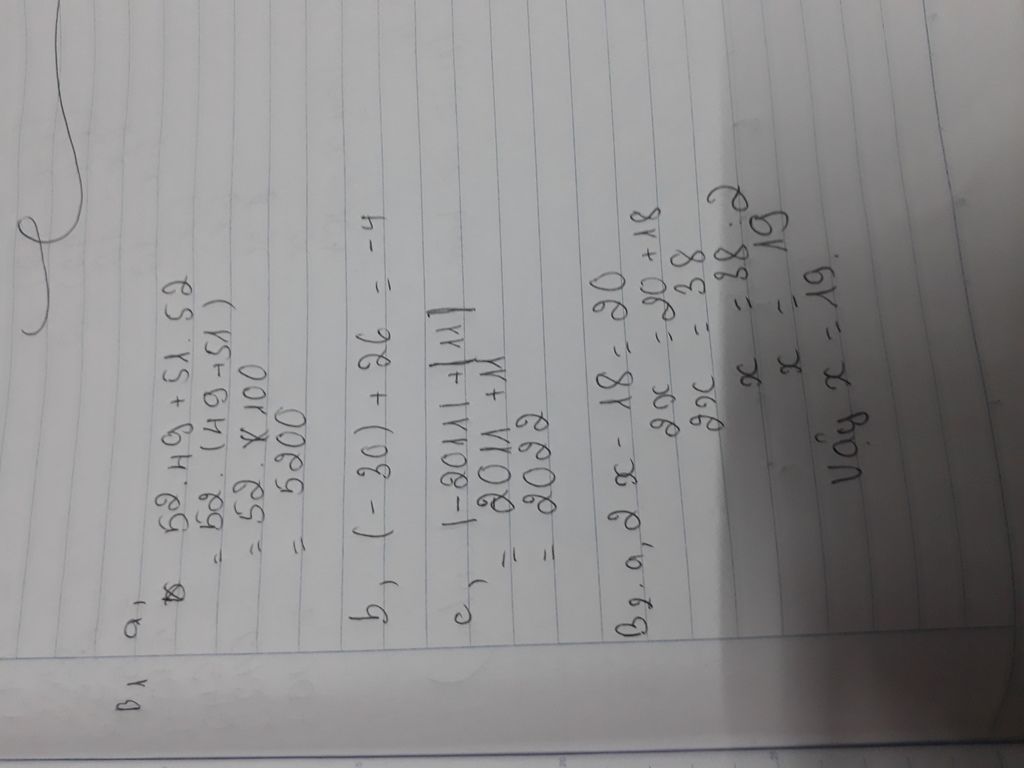 B1 a,
52.49+51.52
= 52.(49+51)
= 52.x100
= 5200
b, (-30)+26 = -4
c, |-2011|+|11|
= 2011 +11
= 2022
B2. a, 2x-18=20
2x =20+18
2x = 38
x =38:2
x = 19
Vậy x =19.